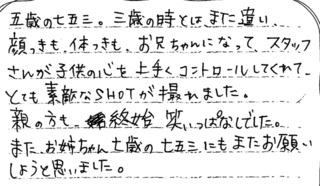 五歳の七五三。三歳の時とは、また違い、
顔つきも、体つきも、お兄ちゃんになって、スタッフ
さんが子供の心を上手くコントロールしてくれて、
とても素敵なSHOTが撮れました。
親の方も、終始笑いっぱなしでした。
また、お姉ちゃん七歳の七五三にもまたお願い
しようと思いました。